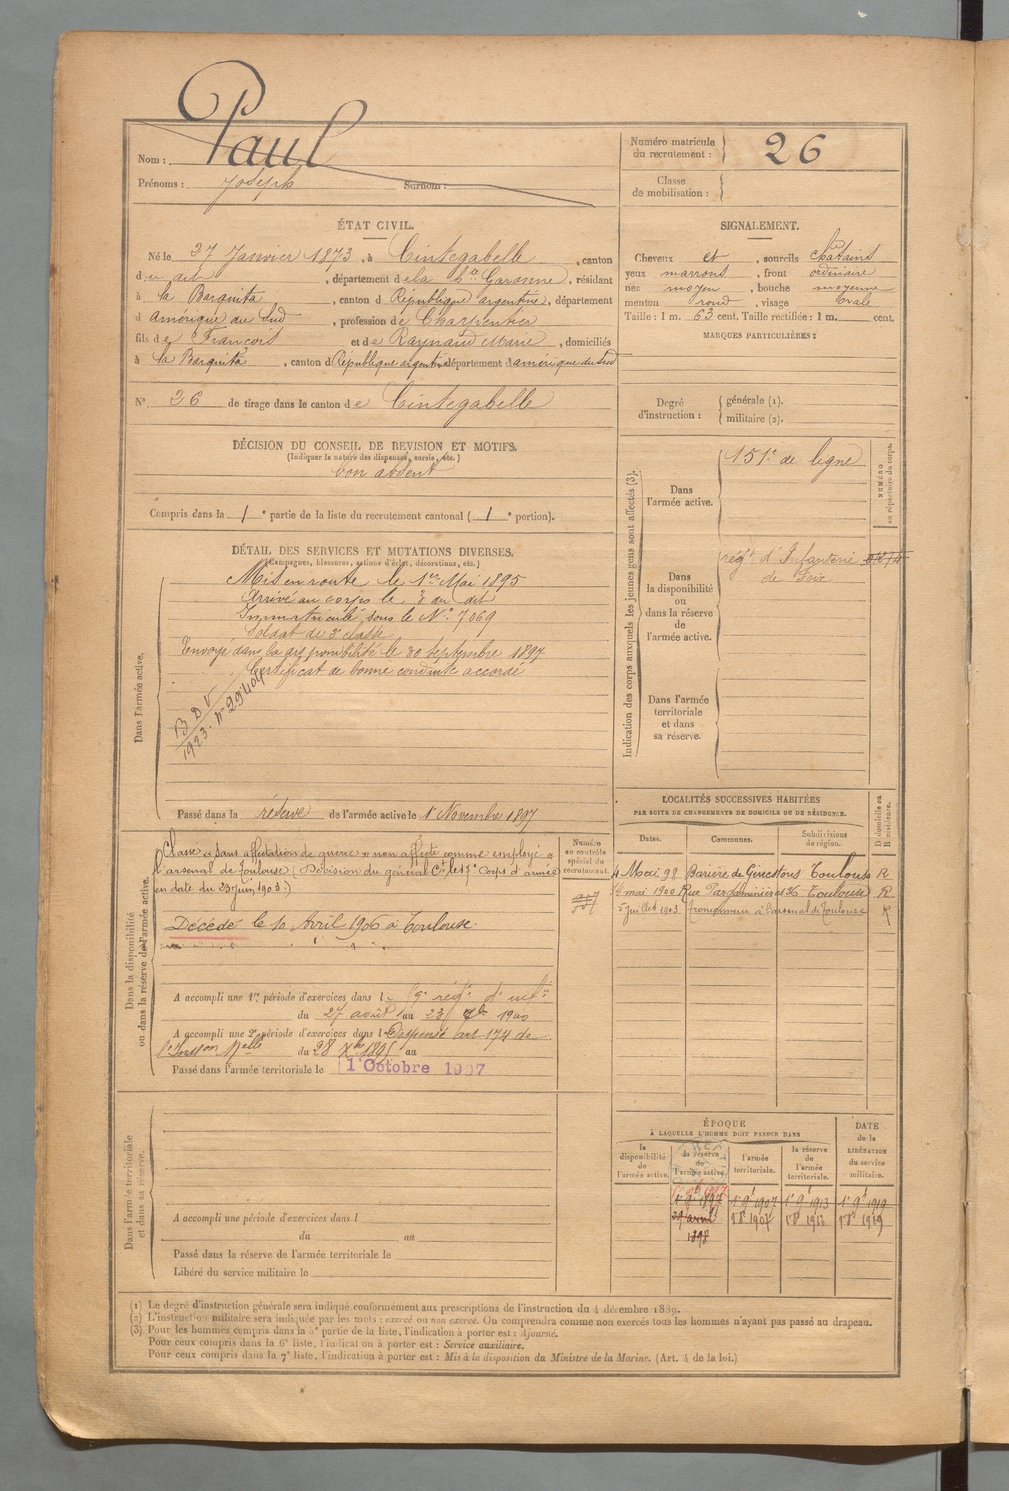 Nom : Paul
Prénoms : Joseph Surnom :
Numéro matricule du recrutement : 26
Classe de mobilisation :
ÉTAT CIVIL.
Né le 27 Janvier 1873, à Cintegabelle, canton
du dit, département de la Hte Garonne, résidant
à la Barquita, canton d République argentine, département
d Amérique du Sud, profession de Charpentier
fils de François et de Raynaud Marie, domiciliés
à la Barquita, canton d République argentine département d amérique du Sud
N° 26 de tirage dans le canton de Cintegabelle
SIGNALEMENT.
Cheveux et , sourcils châtains
yeux marrons , front ordinaire
nez moyen , bouche moyenne
menton rond , visage ovale
Taille : 1 m. 63 cent. Taille rectifiée : 1 m. cent.
MARQUES PARTICULIÈRES :
Degré d'instruction : générale (1).
militaire (2).
DÉCISION DU CONSEIL DE REVISION ET MOTIFS.
(Indiquer la nature des dispenses, sursis, etc.)
bon absent
Compris dans la 1e partie de la liste du recrutement cantonal ( 1e portion).
DÉTAIL DES SERVICES ET MUTATIONS DIVERSES.
(Campagnes, blessures, actions d'éclat, décorations, etc.)
Dans l'armée active.
Mis en route le 1er Mai 1895
Arrivé au corps le 3 au dit
Immatriculé sous le N° 7069
Soldat de 2e classe
Envoyé dans la disponibilité le 30 Septembre 1897
Certificat de bonne conduite accordé
B D V
1923. n° 29404
Passé dans la réserve de l'armée active le 1er Novembre 1897
Indication des corps auxquels les jeunes gens sont affectés (3).
NUMÉRO au répertoire du corps.
Dans l'armée active.
151e de ligne
Dans la disponibilité ou dans la réserve de l'armée active.
régt d'Infanterie
de Foix
Dans l'armée territoriale et dans sa réserve.
LOCALITÉS SUCCESSIVES HABITÉES
PAR SUITE DE CHANGEMENTS DE DOMICILE OU DE RÉSIDENCE.
Dates. Communes. Subdivisions de région. D domicile ou R résidence.
4 Mai 98 Barière de Ginestous Toulouse R
14 mai 1900 Rue Pargaminières 36 Toulouse R
5 Juillet 1903 à l'arsenal de Toulouse R
Dans la disponibilité ou dans la réserve de l'armée active.
Numéro au contrôle spécial du recrutement.
Classé "sans affectation de guerre" non affecté comme employé à
l'arsenal de Toulouse (Décision du général Ct le 17e Corps d'armée
en date du 23 juin 1903.)
Décédé le 10 Avril 1906 à Toulouse.
A accompli une 1re période d'exercices dans l régt d'inf
du 27 août au 23 7bre 1900
A accompli une 2e période d'exercices dans l Dispensé art 174 de
l'Inston Melle du 28 Xbre 1895 au
Passé dans l'armée territoriale le 1er Octobre 1907
Dans l'armée territoriale et dans sa réserve.
A accompli une période d'exercices dans l
du au
Passé dans la réserve de l'armée territoriale le
Libéré du service militaire le
ÉPOQUE
A LAQUELLE L'HOMME DOIT PASSER DANS
DATE de la LIBÉRATION du service militaire.
la disponibilité de l'armée active.
la réserve de l'armée active.
l'armée territoriale.
la réserve de l'armée territoriale.
1er 9bre 1897 1er 9bre 1907 1er 9bre 1913 1er 9bre 1919
30 avril 1898 1er 8bre 1907 1er 8bre 1913 1er 8bre 1919
(1) Le degré d'instruction générale sera indiqué conformément aux prescriptions de l'instruction du 4 décembre 1889.
(2) L'instruction militaire sera indiquée par les mots : exercé ou non exercé. On comprendra comme non exercés tous les hommes n'ayant pas passé au drapeau.
(3) Pour les hommes compris dans la 5e partie de la liste, l'indication à porter est : Ajourné.
Pour ceux compris dans la 6e liste, l'indication à porter est : Service auxiliaire.
Pour ceux compris dans la 7e liste, l'indication à porter est : Mis à la disposition du Ministre de la Marine. (Art. 4 de la loi.)